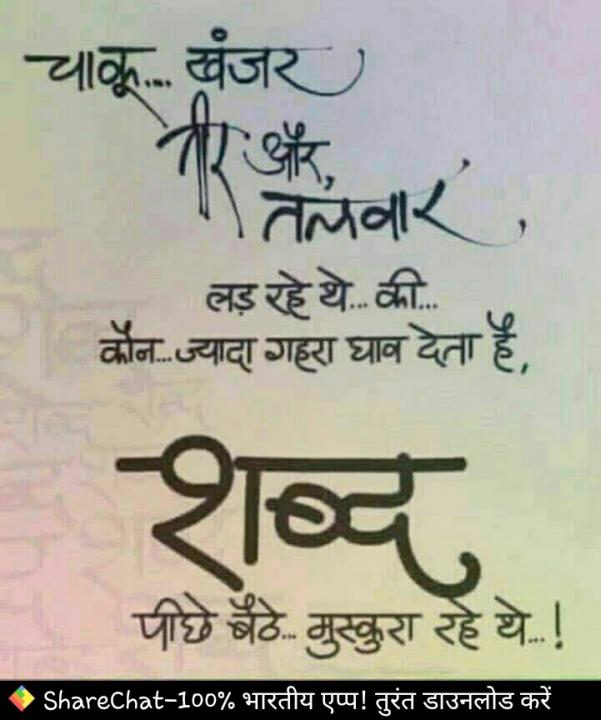 चाकू... खंजर
तीर और,
तलवार,
लड़ रहे थे... की...
कौन...ज्यादा गहरा घाव देता है,
शब्द
पीछे बैठे... मुस्कुरा रहे थे...!
ShareChat-100% भारतीय एप्प! तुरंत डाउनलोड करें